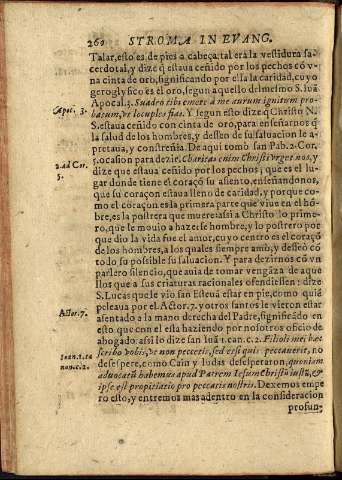 260 STROMA IN EVANG.
Talar, esto es de pies a cabeça: tal era la vestidura sa-
cerdotal, y dize q̃ estaua ceñido por los pechos cõ v-
na cinta de oro, significando por ella la caridad, cuyo
geroglyfico es el oro, segun aquello del mesmo S. Iuã
Apocal. 3. Suadeo tibi emere a me aurum ignitum pro-
Apoc. 3.
batum, vt locuples fias. Y segun esto dize q̃ Christo N.
S. estaua ceñido con cinta de oro, para enseñarnos q̃
la salud de los hombres, y desseo de su saluacion le a-
pretaua, y constreñia. De aqui tomò san Pab. 2. Cor.
2. ad Cor.
5.
5. ocasion para dezir. Charitas enim Christi vrget nos, y
dize que estaua ceñido por los pechos; que es el lu-
gar donde tiene el coraçõ su asiento, enseñandonos,
que su coraçon estaua lleno de caridad, y porque co-
mo el coraçon es la primera parte que viue en el hõ-
bre, es la postrera que muere: assi a Christo lo prime-
ro, que le mouio a hazerse hombre, y lo postrero por
que dio la vida fue el amor, cuyo centro es el coraçõ
de los hombres, a los quales siempre amò, y desseò cõ
todo su possible su saluacion. Y para dezirnos cõ vn
parlero silencio, que auia de tomar vengãça de aque
llos que a sus criaturas racionales ofendiessen: dize
S. Lucas que le vio san Esteuã estar en pie, como quiẽ
peleaua por el Actor. 7. y otros santos le vieron estar
Actor. 7.
asentado a la mano derecha del Padre, significãdo en
esto, que con el esta haziendo por nosotros oficio de
abogado: assi lo dize san Iuã 1. can. c. 2. Filioli mei hæc
scribo vobis, vt non peccetis, sed et si quis peccauerit, no
Ioan. 1. ca
non. c. 2.
desespere, como Cain y Iudas desesperaron, quoniam
aduocatũ habemus apud Patrem Iesum Christũ iustũ, &
ipse est propitiatio pro peccatis nostris. Dexemos empe
ro esto, y entremos mas adentro en la consideracion
profun-